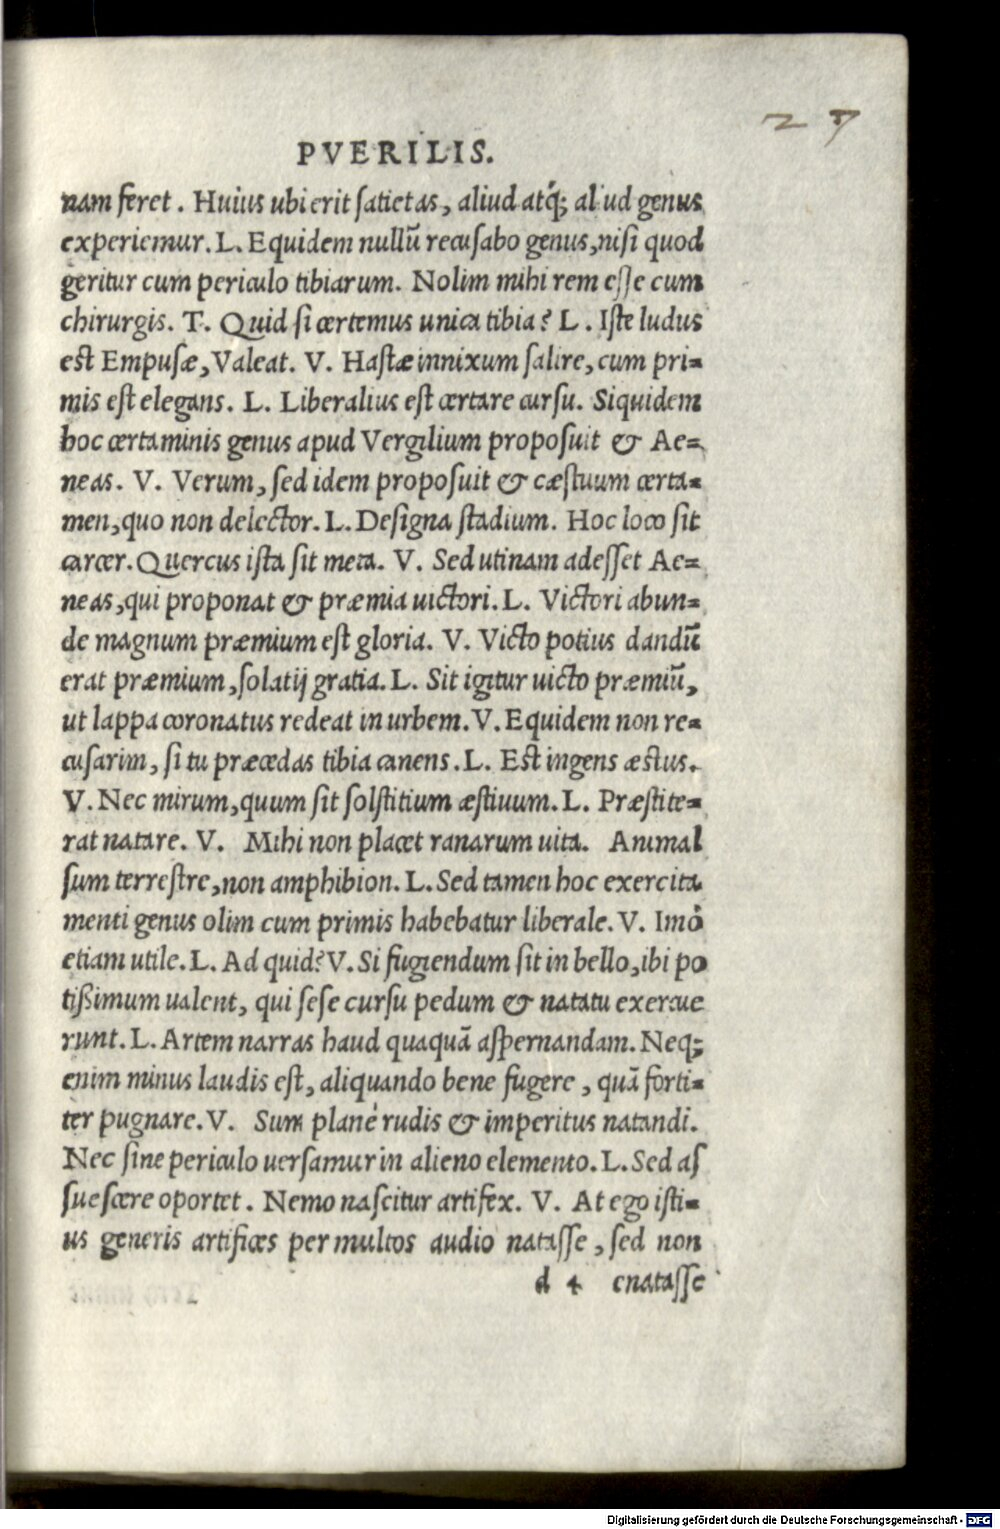 27
PVERILIS.
nam feret. Huius ubi erit ſatietas, aliud atq́; aliud genus
experiemur. L. Equidem nullū recuſabo genus, niſi quod
geritur cum periculo tibiarum. Nolim mihi rem eſſe cum
chirurgis. T. Quid ſi certemus unica tibia? L. Iſte ludus
eſt Empuſæ, Valeat. V. Haſtæ innixum ſalire, cum pri-
mis eſt elegans. L. Liberalius eſt certare curſu. Siquidem
hoc certaminis genus apud Vergilium propoſuit & Ae-
neas. V. Verum, ſed idem propoſuit & cæſtuum certa-
men, quo non delector. L. Deſigna ſtadium. Hoc loco ſit
carcer. Quercus iſta ſit meta. V. Sed utinam adeſſet Ae-
neas, qui proponat & præmia uictori. L. Victori abun-
de magnum præmium eſt gloria. V. Victo potius dandū
erat præmium, ſolatij gratia. L. Sit igitur uicto præmiū,
ut lappa coronatus redeat in urbem. V. Equidem non re-
cuſarim, ſi tu præcedas tibia canens. L. Eſt ingens æſtus.
V. Nec mirum, quum ſit ſolſtitium æſtiuum. L. Præſtite-
rat natare. V. Mihi non placet ranarum uita. Animal
ſum terreſtre, non amphibion. L. Sed tamen hoc exercita
menti genus olim cum primis habebatur liberale. V. Imò
etiam utile. L. Ad quid? V. Si fugiendum ſit in bello, ibi po
tißimum ualent, qui ſeſe curſu pedum & natatu exercue
runt. L. Artem narras haud quaquā aſpernandam. Neq;
enim minus laudis eſt, aliquando bene fugere, quā forti-
ter pugnare. V. Sum planè rudis & imperitus natandi.
Nec ſine periculo uerſamur in alieno elemento. L. Sed aſ
ſueſcere oportet. Nemo naſcitur artifex. V. At ego iſti-
us generis artifices permultos audio nataſſe, ſed non
d 4 enataſſe
Digitalisierung gefördert durch die Deutsche Forschungsgemeinschaft - DFG